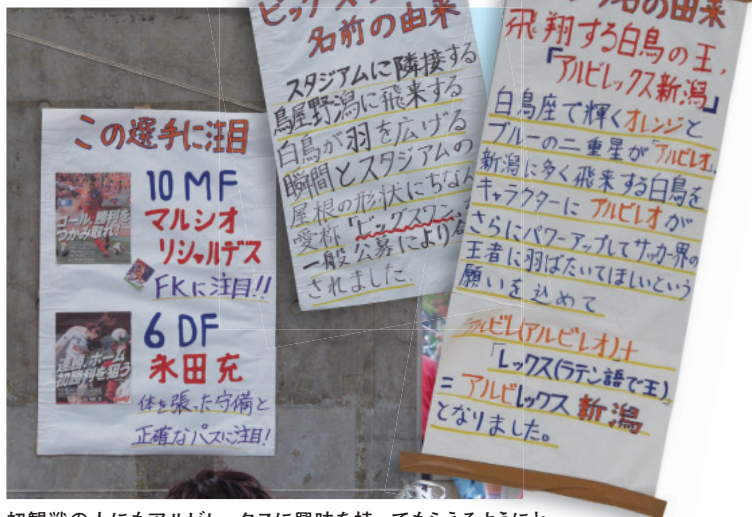 この選手に注目
ゴール、勝利を
つかみ取れ!
10 MF
マルシオ
リシャルデス
FKに注目!!
連勝、ホーム
初勝利を狙う
6 DF
永田 充
体を張った守備と
正確なパスに注目!
名前の由来
スタジアムに隣接する
鳥屋野潟に飛来する
白鳥が羽を広げる
瞬間とスタジアムの
屋根の形状にちなん
愛称「ビッグスワン
一般公募により
されました.
の由来
飛翔する白鳥の王,
「アルビレックス新潟」
白鳥座で輝くオレンジと
ブルーの二重星が「アルビレオ」.
新潟に多く飛来する白鳥を
キャラクターに アルビレオが
さらにパワーアップしてサッカー界の
王者に羽ばたいてほしいという
願いを込めて
アルビレ(アルビレオ)+
「レックス(ラテン語で王)
= アルビレックス新潟
となりました。
初観戦の人にもアルビレックスに興味を持ってもらえるようにと